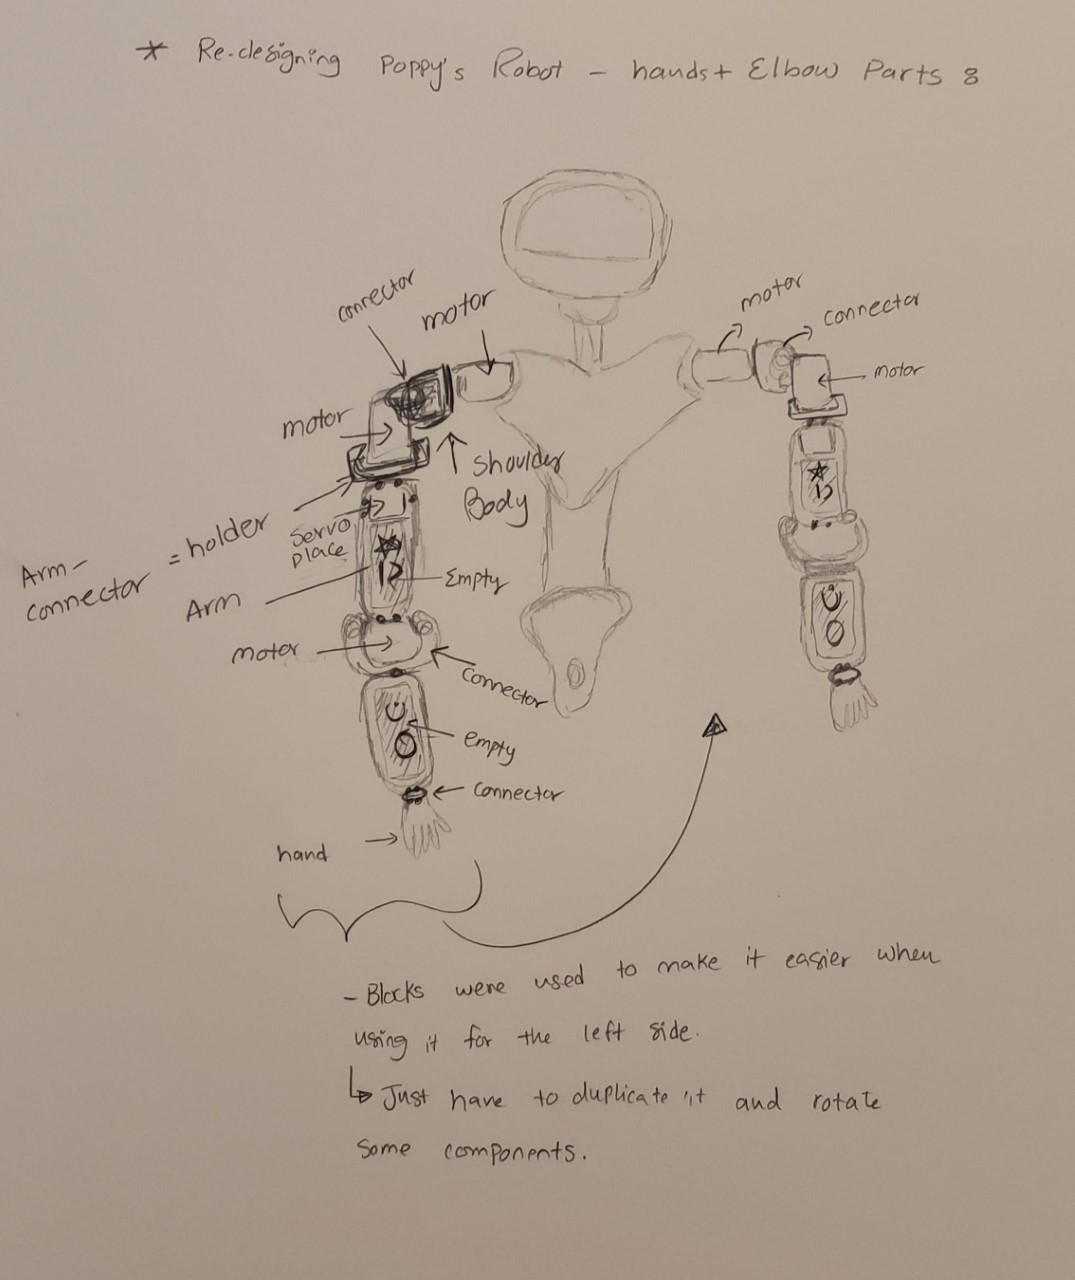 * Re-designing Poppy's Robot - hands + Elbow Parts :
connector
motor
motor
connector
motor
motor
Shoulder
Body
Arm-
connector = holder
Servo
place
Arm
Empty
motor
connector
empty
connector
hand
- Blocks were used to make it easier when
using it for the left side.
↳ Just have to duplicate it and rotate
some components.